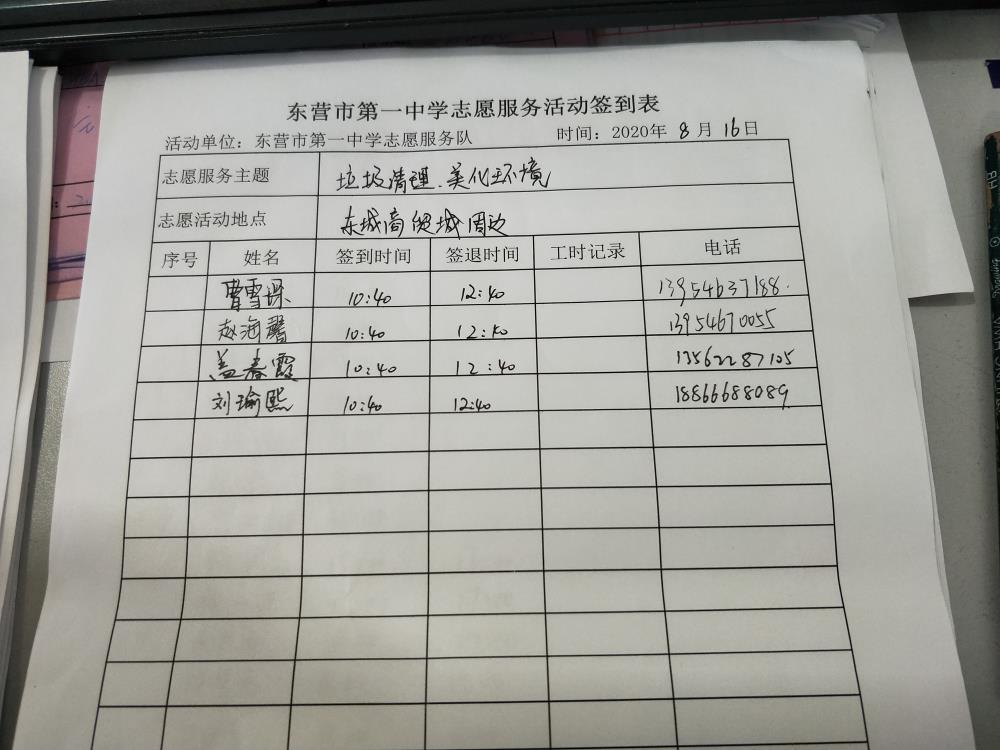 东营市第一中学志愿服务活动签到表
活动单位：东营市第一中学志愿服务队 时间：2020年 8 月 16日
志愿服务主题 垃圾清理、美化环境
志愿活动地点 东城商贸城周边
序号 姓名 签到时间 签退时间 工时记录 电话
曹雪琛 10:40 12:40 13954637188.
赵海馨 10:40 12:40 13954670055
盖春霞 10:40 12:40 13562287105
刘瑜熙 10:40 12:40 18866688089